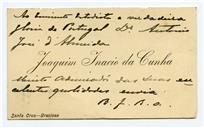 Ao eminente estadista e verdadeira
gloria de Portugal Dr. Antonio
José d'Almeida
Joaquim Inacio da Cunha
Muito admirador das suas ex-
celentes qualidades envia
B. J. R. o.
Santa Cruz-Graciosa